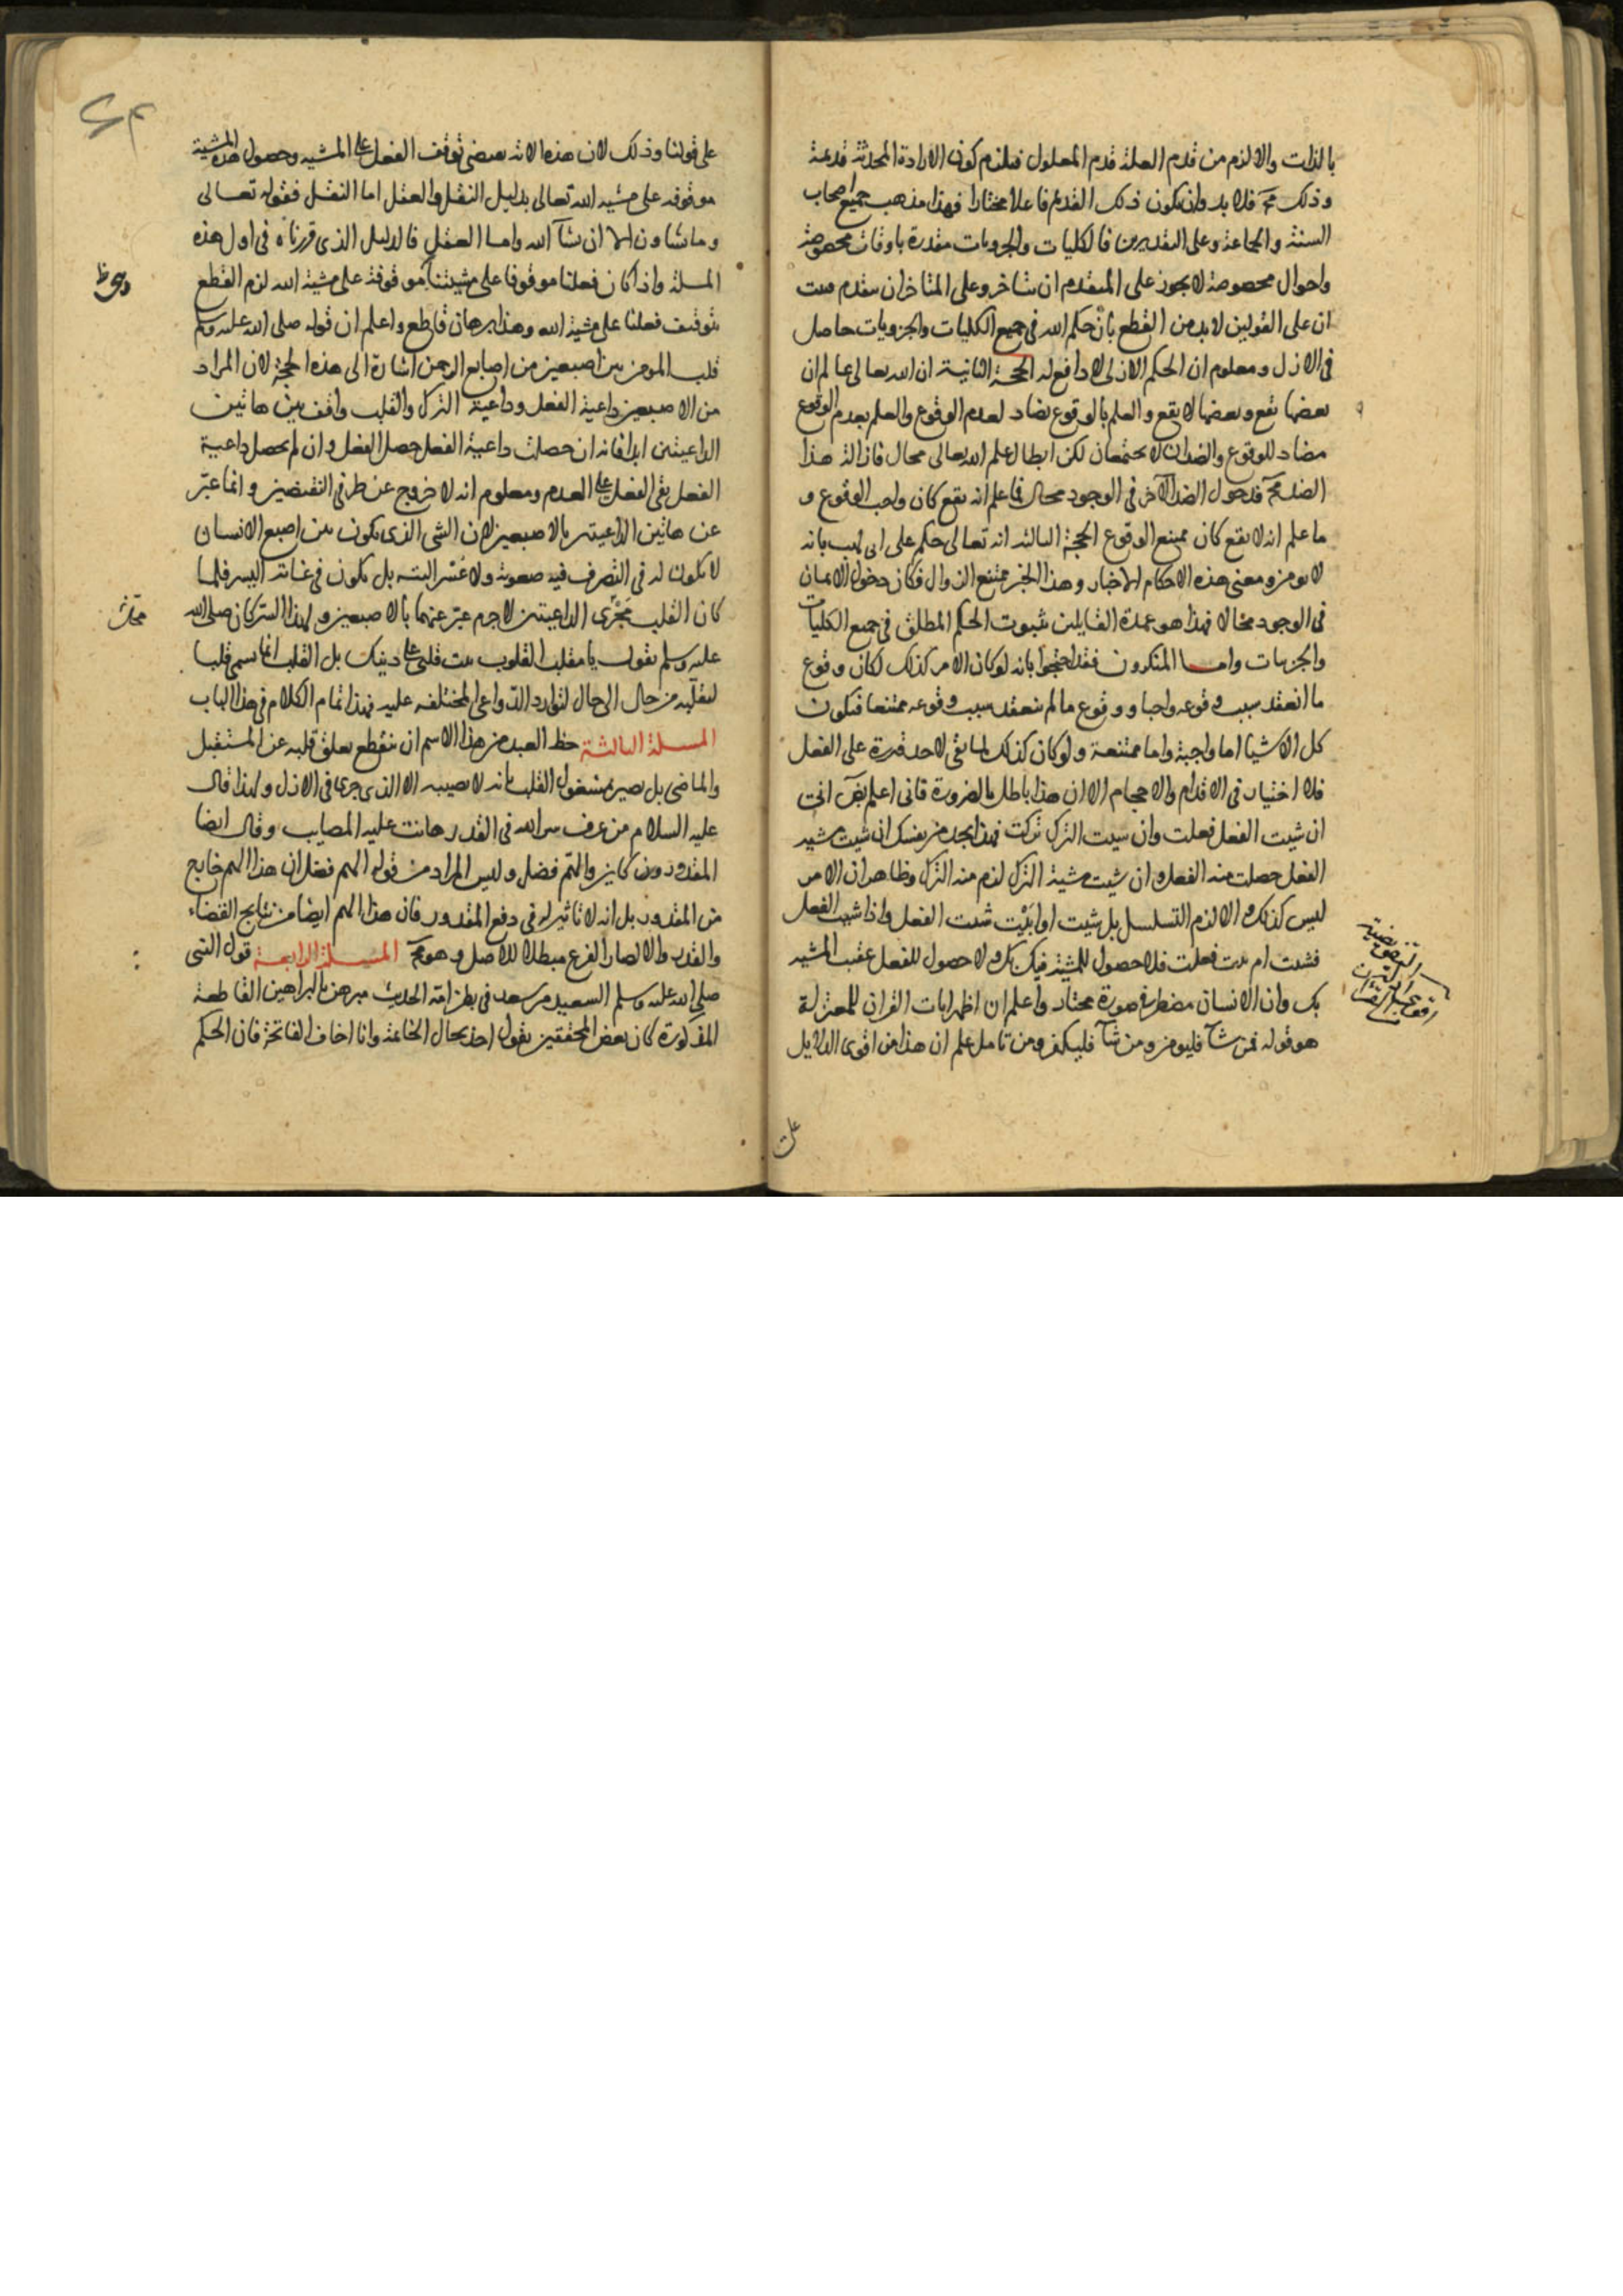 بالذات والا لزم من قدم العلة قدم المعلول فيلزم كون الارادة المحدثة قديمة
وذلك مح فلا بد وان يكون ذلك القديم فاعلا مختارا فهذا مذهب جميع اصحاب
السنة والجماعة وعلى التقديرين فالكليات والجزويات مقدرة باوقات مخصوصة
واحوال مخصوصة لا يجوز على المتقدم ان يتاخر وعلى المتاخر ان يتقدم فثبت
ان على القولين لا بد من القطع بان حكم الله في جميع الكليات والجزويات حاصل
في الازل ومعلوم ان الحكم الازلى لا دافع له الحجة الثانية ان الله تعالى عالم ان
بعضها يقع وبعضها لا يقع والعلم بالوقوع يضاد لعدم الوقوع والعلم بعدم الوقوع
مضاد للوقوع والضدان لا يجتمعان لكن ابطال علم الله تعالى محال فازالة هذا
الضد مح فدخول الضد الآخر في الوجود محال فما علم انه يقع كان واجب الوقوع و
ما علم انه لا يقع كان ممتنع الوقوع الحجة الثالثة انه تعالى حكم على ابي لهب بانه
لا يومن ومعنى هذه الاحكام الاخبار وهذا الخبر ممتنع الزوال فكان دخول الايمان
في الوجود محالا فهذا هو عمدة القايلين بثبوت الحكم المطلق في جميع الكليات
والجزيات واما المنكرون فقد احتجوا بانه لو كان الامر كذلك لكان وقوع
ما انعقد سبب وقوعه واجبا ووقوع ما لم ينعقد سبب وقوعه ممتنعا فيكون
كل الاشيا اما واجبة واما ممتنعة ولو كان كذلك لما بقى لاحد قدرة على الفعل
فلا اختيار في الاقدام والاحجام الا ان هذا باطل بالضرورة فانى اعلم انى
ان شيت الفعل فعلت وان شيت الترك تركت فهذا يجد من نفسك ان شيت مشية
الفعل حصلت منه الفعل وان شيت مشية الترك لزم منه الترك وظاهر ان الامر
ليس كذلك والا لزم التسلسل بل شيت او ابيت شيت الفعل واذا شيت الفعل
فشيت ام ابيت فعلت فلا حصول للمشية فيك بك ولا حصول للفعل عقيب المشية
بك وان الانسان مضطر في صورة مختار واعلم ان اظهر ايات القران للمعتزلة
هو قوله فمن شآ فليومن ومن شآ فليكفر ومن تامل علم ان هذا من اقوى الدلايل
على قولنا وذلك لان هذه الاية تقتضى توقف الفعل على المشية وحصول هذه المشية
موقوفة على مشية الله تعالى بدليل النقل والعقل اما النقل فقوله تعالى
وما تشاون الا ان يشآ الله واما العقل فالدليل الذى قررناه في اول هذه
المسلة واذا كان فعلنا موقوفا على مشيتنا موقوفة على مشية الله لزم القطع
بتوقف فعلنا على مشية الله وهذا برهان قاطع واعلم ان قوله صلى الله عليه وسلم
قلب المومن بين اصبعين من اصابع الرحمن اشارة الى هذه الحجة لان المراد
من الاصبعين داعية الفعل وداعية الترك والقلب واقف بين هاتين
الداعيتين ابدا فانه ان حصلت داعية الفعل حصل الفعل وان لم يحصل داعية
الفعل بقى الفعل على العدم ومعلوم انه لا خروج عن طرفى النقيضين وانما عبّر
عن هاتين الداعيتين بالاصبعين لان الشى الذى يكون بين اصبع الانسان
لا يكون له في التصرف فيه صعوبة ولا عسر البتة بل يكون في غاية اليسر فلما
كان القلب مجرى الداعيتين لاجرم عبّر عنهما بالاصبعين ولهذا السر كان صلى الله
عليه وسلم يقول يا مقلب القلوب ثبت قلبى على دينك بل القلب انما سمى قلبا
لتقلّبه من حال الى حال لتوارد الدواعى المختلفه عليه فهذا تمام الكلام في هذا الباب
المسلة الثالثة حظ العبد من هذا الاسم ان ينقطع تعلق قلبه عن المستقبل
والماضى بل يصير مشغول القلب بانه لا يصيبه الا الذى جرى في الازل ولهذا قال
عليه السلام من عرف سر الله في القدر هانت عليه المصايب وقال ايضا
المقدور كاين والهمّ فضل وليس المراد من قوله الهم فضل ان هذا الهم خارج
من المقدور بل انه لا تاثير له في دفع المقدور فان هذا الهم ايضا من نتايج القضاء
والقدر والا لصار الفرع مبطلا للاصل وهو مح المسلة الرابعة قول النبى
صلى الله عليه وسلم السعيد من سعد في بطن امه الحديث مبرهن بالبراهين القاطعة
المذكورة كان بعض المحققين يقول احذ بحال الخاتمة وانا اخاف الفاتحة فان الحكم